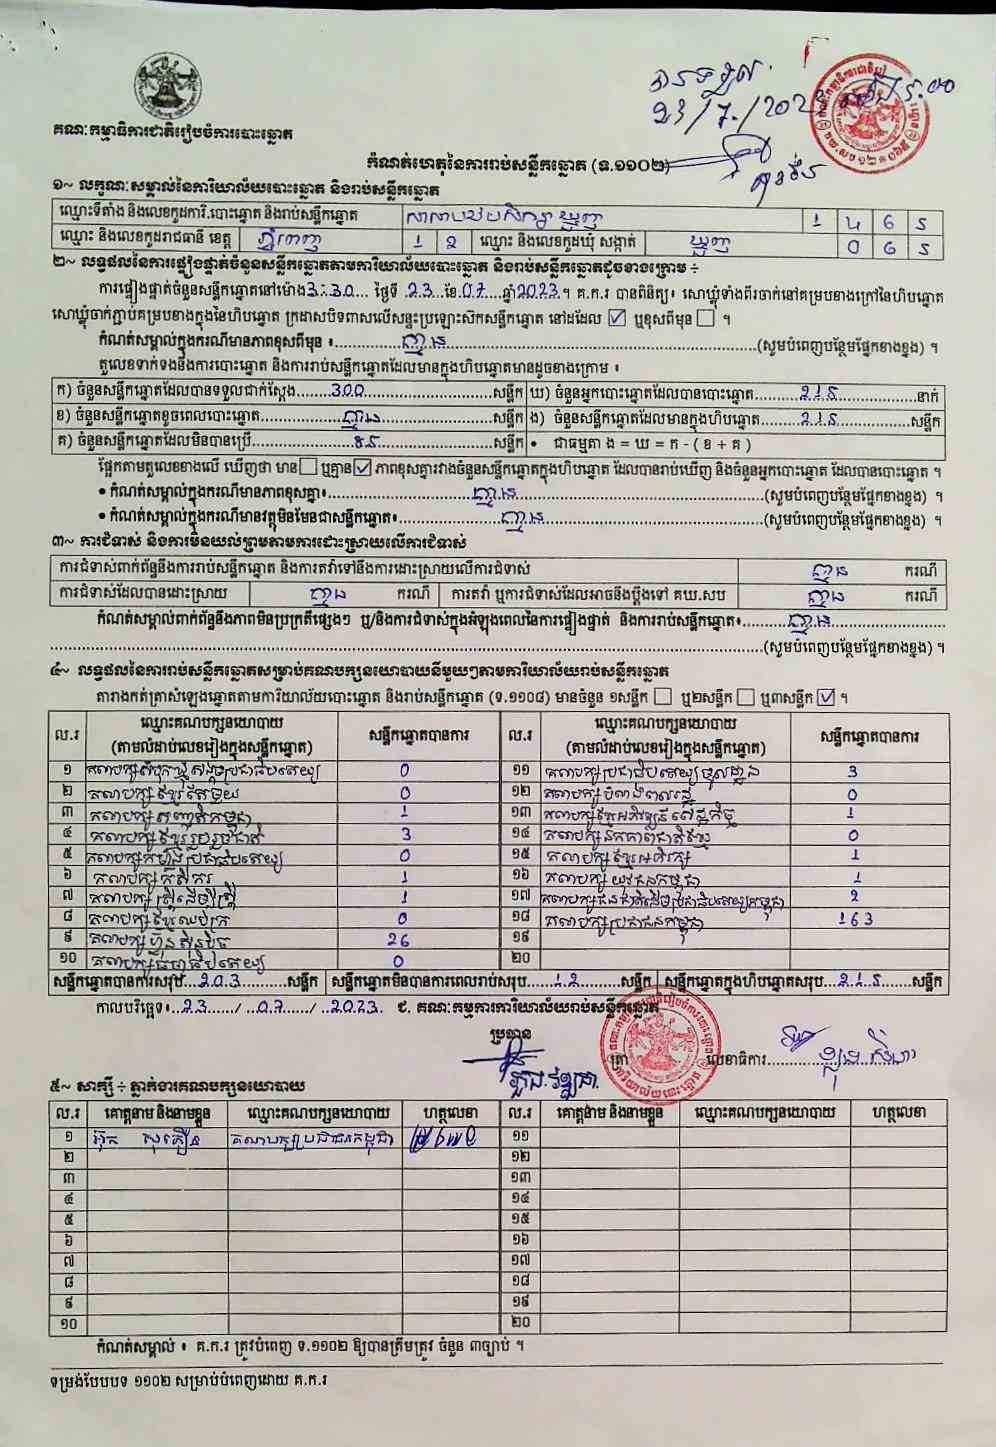 បានទទួល
23/7/202
គណៈកម្មាធិការជាតិរៀបចំការបោះឆ្នោត
កំណត់ហេតុនៃការរាប់សន្លឹកឆ្នោត (ទ.១១០២)
១~ លក្ខណៈសម្គាល់នៃការិយាល័យបោះឆ្នោត និងរាប់សន្លឹកឆ្នោត
ឈ្មោះទីតាំង និងលេខកូដការិ.បោះឆ្នោត និងរាប់សន្លឹកឆ្នោត
ឈ្មោះ និងលេខកូដរាជធានី ខេត្ត ភ្នំពេញ 1 2 ឈ្មោះ និងលេខកូដឃុំ សង្កាត់ 0 6 5
២~ លទ្ធផលនៃការផ្ទៀងផ្ទាត់ចំនួនសន្លឹកឆ្នោតតាមការិយាល័យបោះឆ្នោត និងរាប់សន្លឹកឆ្នោតដូចខាងក្រោម ÷
ការផ្ទៀងផ្ទាត់ចំនួនសន្លឹកឆ្នោតនៅម៉ោង3:30 ថ្ងៃទី 23 ខែ 07 ឆ្នាំ2023។ គ.ក.រ បានពិនិត្យ៖ សោឃ្លុំទាំងពីរចាក់នៅគម្របខាងក្រៅនៃហិបឆ្នោត
សោឃ្លុំចាក់ភ្ជាប់គម្របខាងក្នុងនៃហិបឆ្នោត ក្រដាសបិទពាសលើសន្ទះប្រឡោះស៊កសន្លឹកឆ្នោត នៅដដែល ☑ ឬខុសពីមុន ☐ ។
កំណត់សម្គាល់ក្នុងករណីមានភាពខុសពីមុន ៖ គ្មាន (សូមបំពេញបន្ថែមផ្នែកខាងខ្នង) ។
តួលេខទាក់ទងនឹងការបោះឆ្នោត និងការរាប់សន្លឹកឆ្នោតដែលមានក្នុងហិបឆ្នោតមានដូចខាងក្រោម ៖
ក) ចំនួនសន្លឹកឆ្នោតដែលបានទទួលជាក់ស្តែង 300 សន្លឹក ឃ) ចំនួនអ្នកបោះឆ្នោតដែលបានបោះឆ្នោត 215 នាក់
ខ) ចំនួនសន្លឹកឆ្នោតខូចពេលបោះឆ្នោត គ្មាន សន្លឹក ង) ចំនួនសន្លឹកឆ្នោតដែលមានក្នុងហិបឆ្នោត 215 សន្លឹក
គ) ចំនួនសន្លឹកឆ្នោតដែលមិនបានប្រើ 85 សន្លឹក • ជាធម្មតា ង = ឃ = ក - ( ខ + គ )
ផ្អែកតាមតួលេខខាងលើ ឃើញថា មាន ☐ ឬគ្មាន ☑ ភាពខុសគ្នារវាងចំនួនសន្លឹកឆ្នោតក្នុងហិបឆ្នោត ដែលបានរាប់ឃើញ និងចំនួនអ្នកបោះឆ្នោត ដែលបានបោះឆ្នោត ។
• កំណត់សម្គាល់ក្នុងករណីមានភាពខុសគ្នា៖ គ្មាន (សូមបំពេញបន្ថែមផ្នែកខាងខ្នង) ។
• កំណត់សម្គាល់ក្នុងករណីមានវត្ថុមិនមែនជាសន្លឹកឆ្នោត៖ គ្មាន (សូមបំពេញបន្ថែមផ្នែកខាងខ្នង) ។
៣~ ការជំទាស់ និងការមិនយល់ព្រមតាមការដោះស្រាយលើការជំទាស់
ការជំទាស់ពាក់ព័ន្ធនឹងការរាប់សន្លឹកឆ្នោត និងការតវ៉ាទៅនឹងការដោះស្រាយលើការជំទាស់ គ្មាន ករណី
ការជំទាស់ដែលបានដោះស្រាយ គ្មាន ករណី ការតវ៉ា ឬការជំទាស់ដែលអាចនឹងប្តឹងទៅ គឃ.សប គ្មាន ករណី
កំណត់សម្គាល់ពាក់ព័ន្ធនឹងភាពមិនប្រក្រតីផ្សេងៗ ឬ/និងការជំទាស់ក្នុងអំឡុងពេលនៃការផ្ទៀងផ្ទាត់ និងការរាប់សន្លឹកឆ្នោត៖ គ្មាន
(សូមបំពេញបន្ថែមផ្នែកខាងខ្នង) ។
៤~ លទ្ធផលនៃការរាប់សន្លឹកឆ្នោតសម្រាប់គណបក្សនយោបាយនីមួយៗតាមការិយាល័យរាប់សន្លឹកឆ្នោត
តារាងកត់ត្រាសំឡេងឆ្នោតតាមការិយាល័យបោះឆ្នោត និងរាប់សន្លឹកឆ្នោត (ទ.១១០៨) មានចំនួន ១សន្លឹក ☐ ឬ២សន្លឹក ☐ ឬ៣សន្លឹក ☑ ។
ល.រ ឈ្មោះគណបក្សនយោបាយ (តាមលំដាប់លេខរៀងក្នុងសន្លឹកឆ្នោត) សន្លឹកឆ្នោតបានការ ល.រ ឈ្មោះគណបក្សនយោបាយ (តាមលំដាប់លេខរៀងក្នុងសន្លឹកឆ្នោត) សន្លឹកឆ្នោតបានការ
១ គណបក្សសំបុកឃ្មុំសង្គមប្រជាធិបតេយ្យ 0 ១១ គណបក្សប្រជាធិបតេយ្យមូលដ្ឋាន 3
២ គណបក្សខ្មែរតែមួយ 0 ១២ 0
៣ គណបក្សសញ្ជាតិកម្ពុជា 1 ១៣ គណបក្សខ្មែរអភិវឌ្ឍន៍សេដ្ឋកិច្ច 1
៤ គណបក្សខ្មែររួបរួមជាតិ 3 ១៤ គណបក្សឯកភាពជាតិខ្មែរ 0
៥ គណបក្សកម្លាំងប្រជាធិបតេយ្យ 0 ១៥ គណបក្សខ្មែរអភិរក្ស 1
៦ គណបក្សកសិករ 1 ១៦ គណបក្សយុវជនកម្ពុជា 1
៧ គណបក្សស្ត្រីដើម្បីស្ត្រី 1 ១៧ គណបក្សជនជាតិដើមប្រជាធិបតេយ្យកម្ពុជា 2
៨ គណបក្សខ្មែរឈប់ក្រ 0 ១៨ គណបក្សប្រជាជនកម្ពុជា 163
៩ គណបក្សហ៊្វុនស៊ិនប៉ិច 26 ១៩
១០ គណបក្សធម្មាធិបតេយ្យ 0 ២០
សន្លឹកឆ្នោតបានការសរុប 203 សន្លឹក សន្លឹកឆ្នោតមិនបានការពេលរាប់សរុប 12 សន្លឹក សន្លឹកឆ្នោតក្នុងហិបឆ្នោតសរុប 215 សន្លឹក
កាលបរិច្ឆេទ៖ 23 / 07 / 2023 ជ. គណៈកម្មការការិយាល័យរាប់សន្លឹកឆ្នោត
ប្រធាន ត្រា លេខាធិការ
៥~ សាក្សី ÷ ភ្នាក់ងារគណបក្សនយោបាយ
ល.រ គោត្តនាម និងនាមខ្លួន ឈ្មោះគណបក្សនយោបាយ ហត្ថលេខា ល.រ គោត្តនាម និងនាមខ្លួន ឈ្មោះគណបក្សនយោបាយ ហត្ថលេខា
១ គណបក្សប្រជាជនកម្ពុជា ១១
២ ១២
៣ ១៣
៤ ១៤
៥ ១៥
៦ ១៦
៧ ១៧
៨ ១៨
៩ ១៩
១០ ២០
កំណត់សម្គាល់ ៖ គ.ក.រ ត្រូវបំពេញ ទ.១១០២ ឱ្យបានត្រឹមត្រូវ ចំនួន ៣ច្បាប់ ។
ទម្រង់បែបបទ ១១០២ សម្រាប់បំពេញដោយ គ.ក.រ